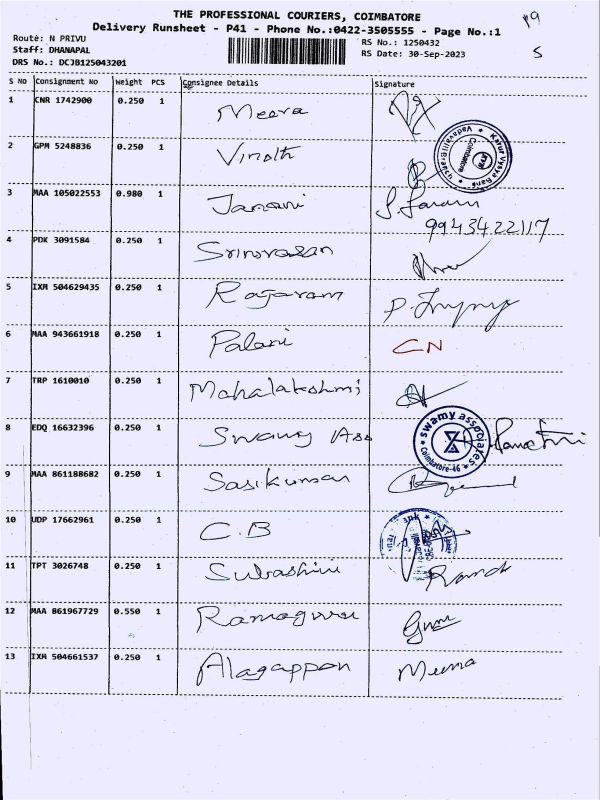 THE PROFESSIONAL COURIERS, COIMBATORE
Delivery Runsheet - P41 - Phone No.:0422-3505555 - Page No.:1
Route: N PRIVU RS No.: 1250432
Staff: DHANAPAL RS Date: 30-Sep-2023
DRS No.: DCJB125043201
S No Consignment No Weight PCS Consignee Details Signature
1 CNR 1742900 0.250 1 Meera
2 GPM 5248836 0.250 1 Vinoth
Karur Vysya Bank Coimbatore
3 MAA 105022553 0.980 1 Janani
9943422117
4 PDK 3091584 0.250 1 Srinivasan
5 IXM 504629435 0.250 1 Rajaram
6 MAA 943661918 0.250 1 Palani CN
7 TRP 1610010 0.250 1 Mahalakshmi
8 EDQ 16632396 0.250 1 Swamy Ass
swamy associates Coimbatore-46
9 MAA 861188682 0.250 1 Sasikumar
10 UDP 17662961 0.250 1 C.B
11 TPT 3026748 0.250 1 Subashini
12 MAA 861967729 0.550 1 Ramaguru Guru
13 IXM 504661537 0.250 1 Alagappan Meena